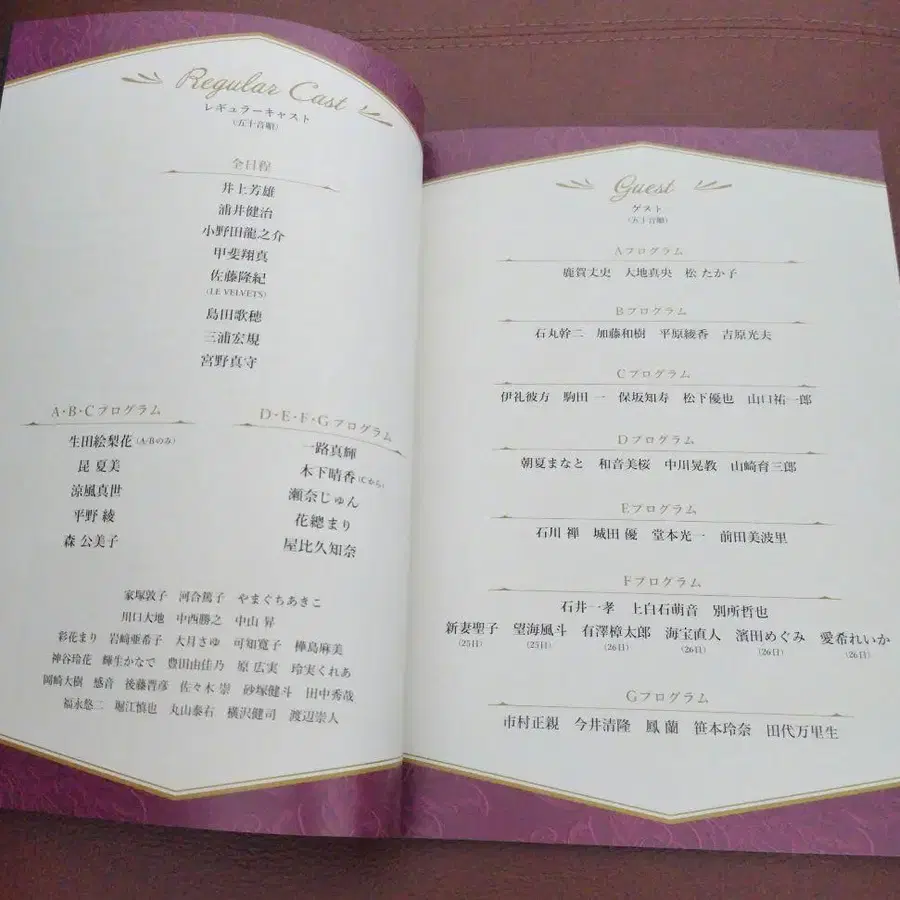 Regular Cast
レギュラーキャスト
(五十音順)
全日程
井上芳雄
浦井健治
小野田龍之介
甲斐翔真
佐藤隆紀
(LE VELVETS)
島田歌穂
三浦宏規
宮野真守
A・B・Cプログラム
生田絵梨花(A・Bのみ)
昆 夏美
涼風真世
平野 綾
森 公美子
D・E・F・Gプログラム
一路真輝
木下晴香(Cから)
瀬奈じゅん
花總まり
屋比久知奈
家塚敦子 河合篤子 やまぐちあきこ
川口大地 中西勝之 中山 昇
彩花まり 岩﨑亜希子 大月さゆ 可知寛子 樺島麻美
神谷玲花 輝生かなで 豊田由佳乃 原 広実 玲実くれあ
岡崎大樹 感音 後藤晋彦 佐々木 崇 砂塚健斗 田中秀哉
福永悠二 堀江慎也 丸山泰右 横沢健司 渡辺崇人
Guest
ゲスト
(五十音順)
Aプログラム
鹿賀丈史 大地真央 松 たか子
Bプログラム
石丸幹二 加藤和樹 平原綾香 吉原光夫
Cプログラム
伊礼彼方 駒田 一 保坂知寿 松下優也 山口祐一郎
Dプログラム
朝夏まなと 和音美桜 中川晃教 山崎育三郎
Eプログラム
石川 禅 城田 優 堂本光一 前田美波里
Fプログラム
石井一孝 上白石萌音 別所哲也
新妻聖子 望海風斗 有澤樟太郎 海宝直人 濱田めぐみ 愛希れいか
(25日) (25日) (26日) (26日) (26日) (26日)
Gプログラム
市村正親 今井清隆 鳳 蘭 笹本玲奈 田代万里生